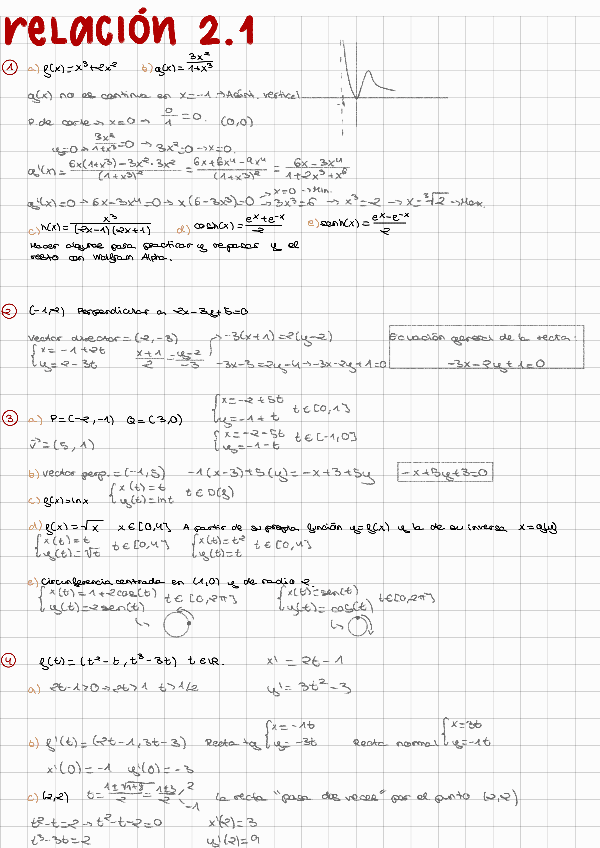 relación 2.1
① a) f(x)=x³+2x² b) g(x)=3x²/1+x³
g(x) no es continua en x=-1 → Asínt. vertical
P. de corte → x=0 → 0/1=0. (0,0)
y=0 → 3x²/1+x³=0 → 3x²=0 → x=0.
g'(x)=6x(1+x³)-3x²·3x²/(1+x³)²=6x+6x⁴-9x⁴/(1+x³)²=6x-3x⁴/1+2x³+x⁶
g'(x)=0 → 6x-3x⁴=0 → x(6-3x³)=0 → x=0 → Min.
→ 3x³=6 → x³=2 → x=³√2 → Max.
c) h(x)=x³/(2x-1)(2x+1) d) cosh(x)=eˣ+e⁻ˣ/2 e) senh(x)=eˣ-e⁻ˣ/2
Hacer alguna para practicar y repasar y el
resto con Wolfram Alpha.
② (-1,2) Perpendicular a 2x-3y+5=0
Vector director=(2,-3) → -3(x+1)=2(y-2) Ecuación general de la recta:
{x=-1+2t
y=2-3t x+1/2=y-2/-3 -3x-3=2y-4 → -3x-2y+1=0 -3x-2y+1=0
③ a) P=(-2,-1) Q=(3,0) {x=-2+5t
y=-1+t t∈[0,1]
v⃗=(5,1) {x=-2-5t
y=-1-t t∈[-1,0]
b) vector perp.=(-1,5) -1(x-3)+5(y)=-x+3+5y -x+5y+3=0
c) f(x)=lnx {x(t)=t
y(t)=lnt t∈D(f)
d) f(x)=√x x∈[0,4] A partir de su propia función y=f(x) y la de su inversa x=g(y)
{x(t)=t
y(t)=√t t∈[0,4] {x(t)=t²
y(t)=t t∈[0,4]
e) Circunferencia centrada en (1,0) y de radio 2.
{x(t)=1+2cos(t)
y(t)=2sen(t) t∈[0,2π] {x(t)=sen(t)
y(t)=cos(t) t∈[0,2π]
④ f(t)=(t²-t, t³-3t) t∈ℝ. x'=2t-1
a) 2t-1>0 → 2t>1 t>1/2 y'=3t²-3
b) f'(t)=(2t-1,3t-3) Recta tg {x=-1t
y=-3t Recta normal {x=3t
y=-1t
x'(0)=-1 y'(0)=-3
c) (2,2) t=1±√1+8/2=1±3/2 2 -1 la recta "pasa dos veces" por el punto (2,2)
t²-t=2 → t²-t-2=0 x'(2)=3
t³-3t=2 y'(2)=9